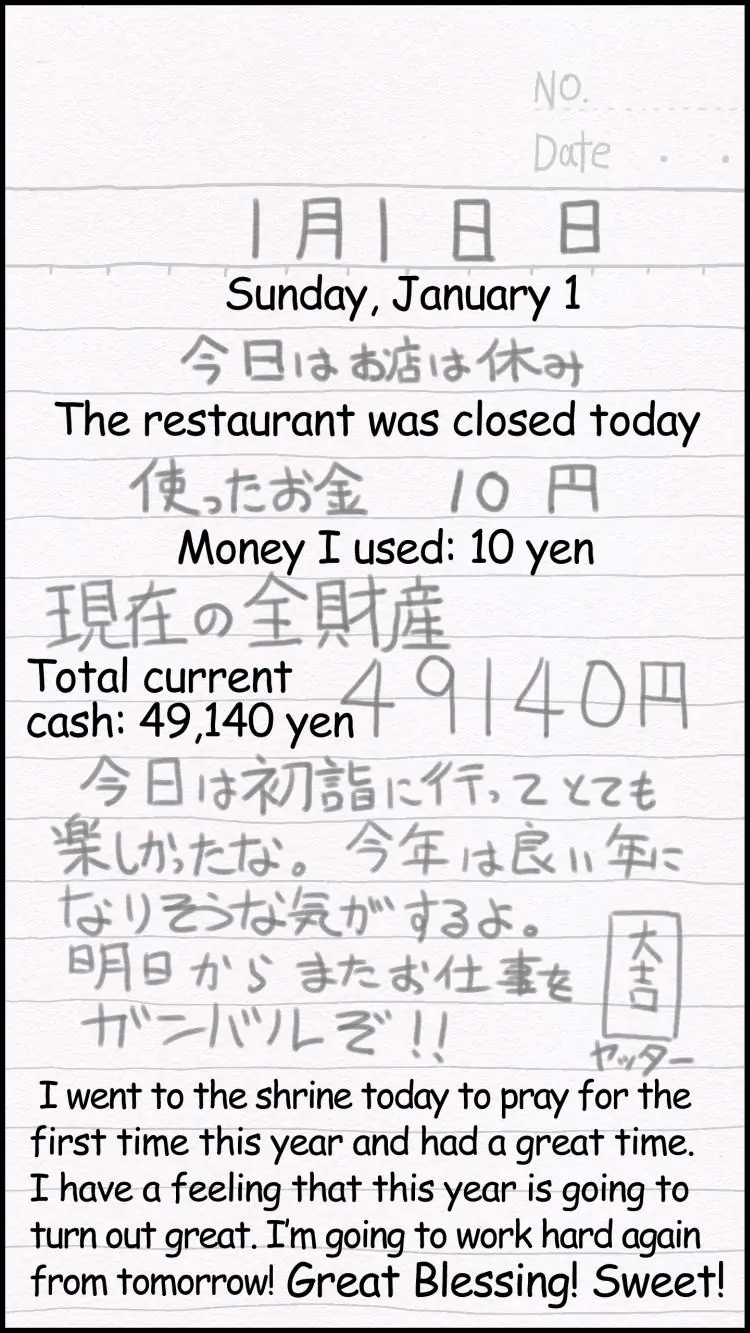 NO.
Date
1月1日 日
Sunday, January 1
今日はお店は休み
The restaurant was closed today
使ったお金 10円
Money I used: 10 yen
現在の全財産
Total current
cash: 49,140 yen
49140円
今日は初詣に行ってとても
楽しかったな。今年は良い年に
なりそうな気がするよ。
明日からまたお仕事を
ガンバルぞ!!
大吉
ヤッター
I went to the shrine today to pray for the
first time this year and had a great time.
I have a feeling that this year is going to
turn out great. I'm going to work hard again
from tomorrow! Great Blessing! Sweet!